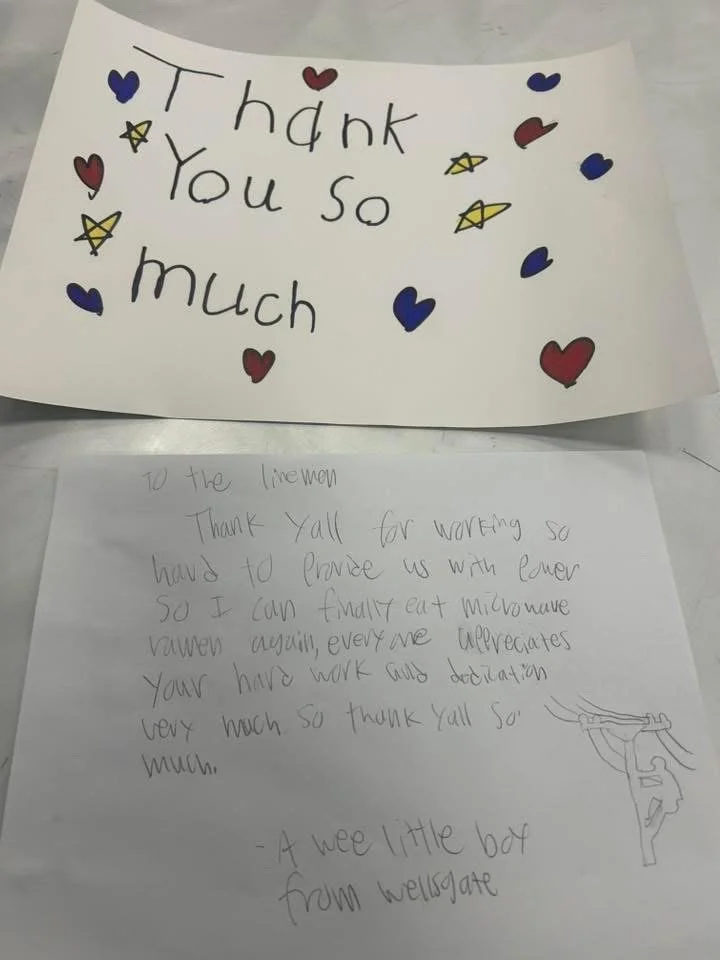 Thank
You So
much
To the linemen
Thank Yall for working so
hard to Provide us with Power
So I can finally eat microwave
ramen again, everyone appreciates
Your hard work and dedication
very much so thank Yall So
much.
-A wee little boy
from wellsgate